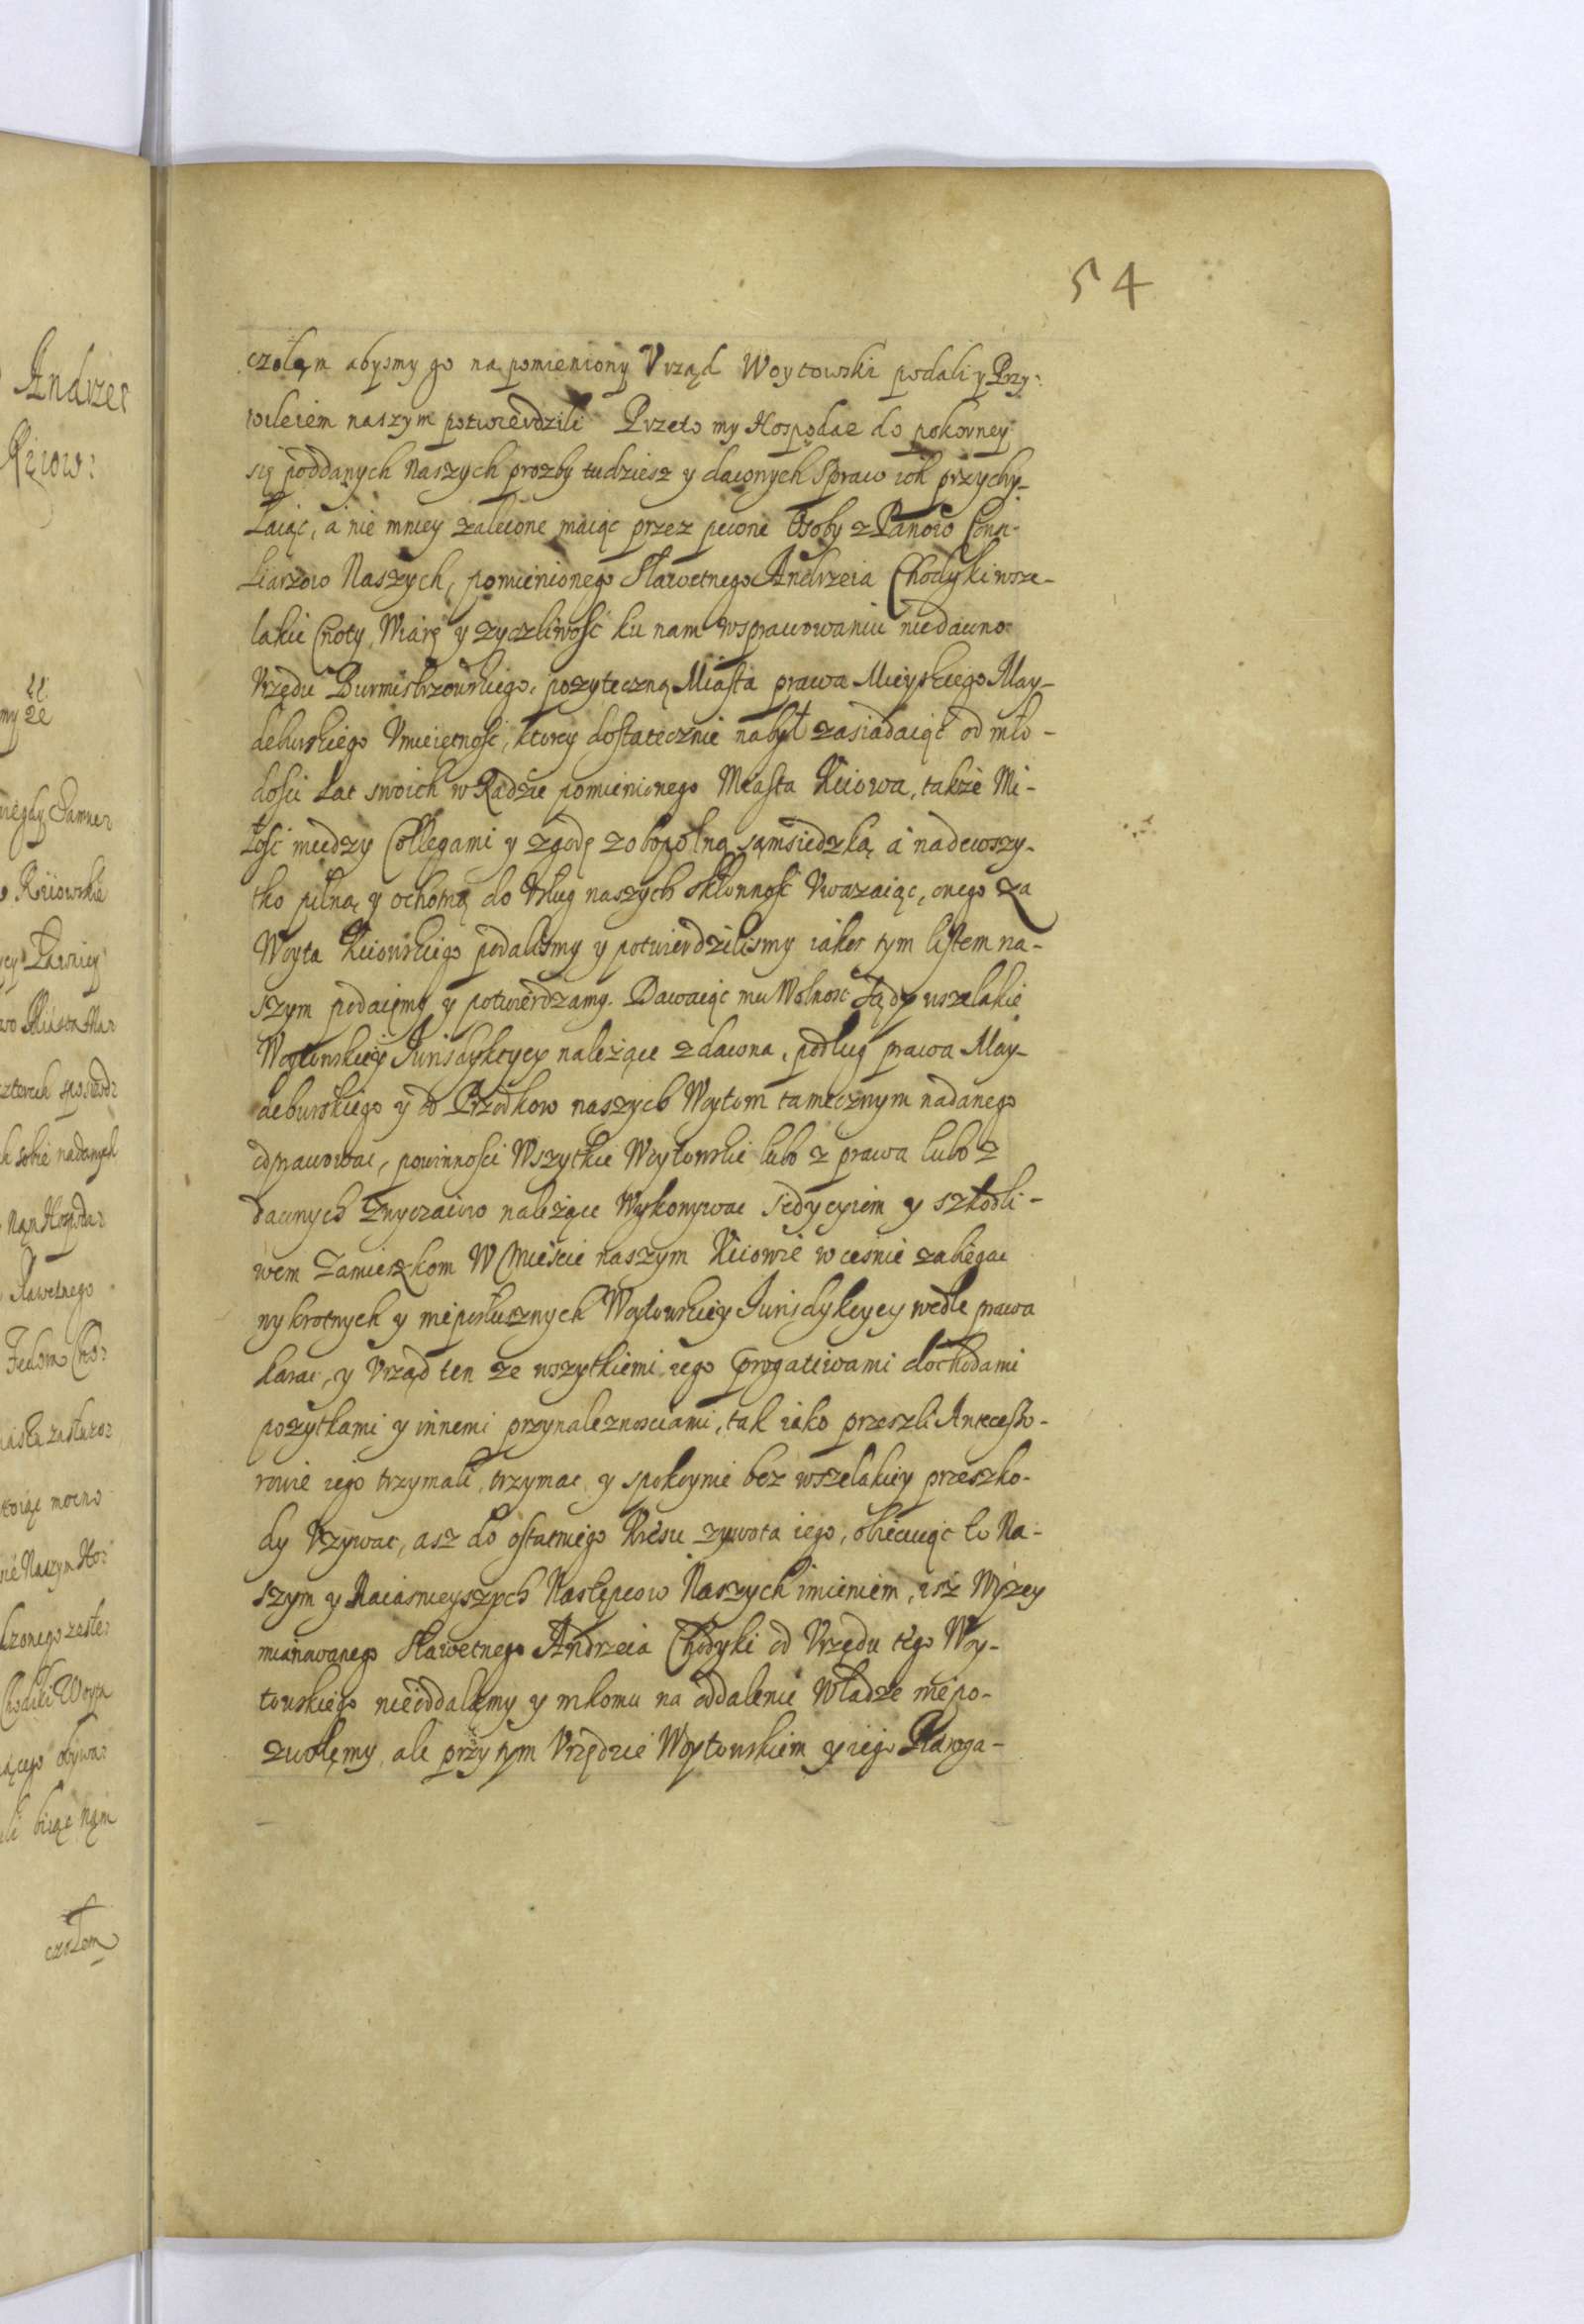 54
czołęm abysmy go na pomieniony Vrząd Woytowski podali y Przy:
wileiem naszym potwierdzili Przeto my Hospodar do pokorney
się poddanych naszych prozby tudziesz y dawnych spraw ich przychy-
laiąc, a nie mniey zalecone maiąc przez pewne Osoby z Panow
Naszych, pomienionego Sławetnego Andrzeia Chodyki wsze-
lakie Cnoty, Wiarę y zyczliwość ku nam wsprawowaniu niedawno
Vrzędu Burmistrzowskiego, pozyteczną Miasta prawa Mieyskiego May-
deburskiego Vmieiętność, ktorey dostatecznie nabył zasiadaiąc od mło-
dości Lat swoich w Radzie pomienionego Miasta Kiiowa, także Mi-
łość miedzy Collegami y zgodę zobopolną sąmsiedzką a nadewszy-
tko pilną y ochotną do Vsług naszych skłonność Vwazaiąc, onego za
Woyta Kiiowskiego podalismy y potwierdzilismy iakoż tym listem na-
szym podaięmy y potwierdzamy. Dawaiąc mu Wolnosc sądy wszelakie
Woytowskiey Jurisdykcyey należące zdawna, podług prawa May-
deburskiego y od Przodkow naszych Woytom tamecznym nadanego
odprawowac, powinności Wszytkie Woytowskie lubo z prawa lubo z
dawnych zwyczaiow należące Wykonywac sedycyiem y szkodli-
wem zamieszkom W Mieście naszym Kiiowie wcesnie zabiegac
wykrotnych y nieposłusznych Woytowskiey Jurisdykcyey wedle prawa
karac, y Vrząd ten ze wszytkiemi iego progatiwami dochodami
pożytkami y innemi przynależnościami, tak iako przeszli Antecesso-
rowie iego trzymali, trzymac y spokoynie bez wszelakiey przeszko-
dy Vzywac, asz do ostatniego Kresu zywota iego, obiecuiąc to Na-
szym y Naiasnieyszych Następcow Naszych imieniem, isz Wyzey
mianowanego Sławetnego Andrzeia Chodyki od Vrzędu tego Woy-
towskiego nieoddalęmy y nikomu na oddalenie Władze niepo-
zwolęmy, ale przy tym Vrzędzie Woytowskiem y iego
Andrzei
Kiiow:
my że
Kiiowskie
sobie nadanych
Sławetnego
Naszym Ho:
Woyta
biiąc Nąm
czołem